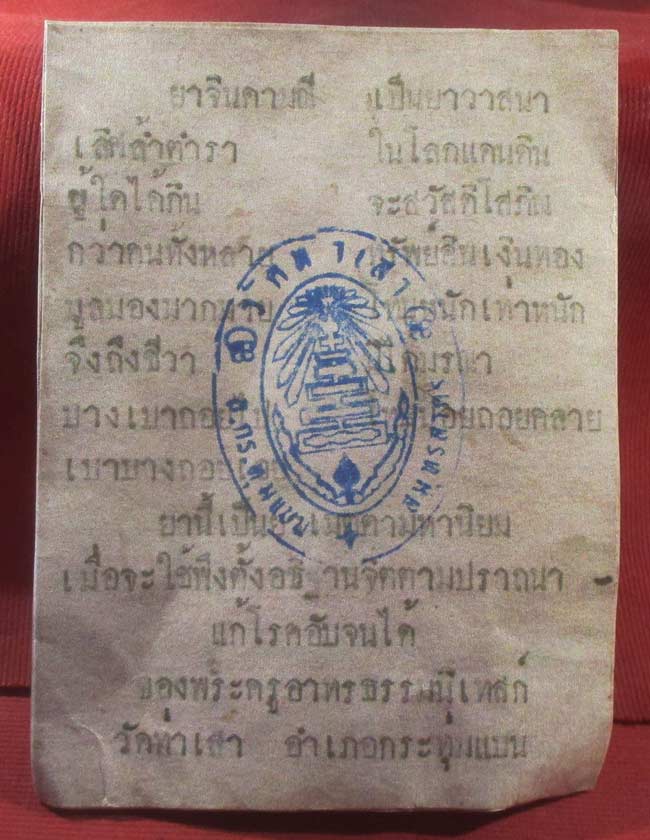 ยาจินดามณี เป็นยาวาสนา
เลิศล้ำตำรา ในโลกแดนดิน
ผู้ใดได้กิน จะสวัสดิโสภิณ
กว่าคนทั้งหลาย ทรัพย์สินเงินทอง
มูลมองมากมาย หนักเท่าหนัก
จึงถึงชีวา มรณา
บางเบาถอย น้อยถอยคลาย
เบาบางถอย
ยานี้เป็นยาเมตตามหานิยม
เมื่อจะใช้พึงตั้งอธิฐานจิตตามปราถนา
แก้โรคอับจนได้
ของพระครูอาทรธรรมนิเทสก์
วัดท่าเสา อำเภอกระทุ่มแบน
วัดท่าเสา
อ.กระทุ่มแบน
สมุทรสาคร